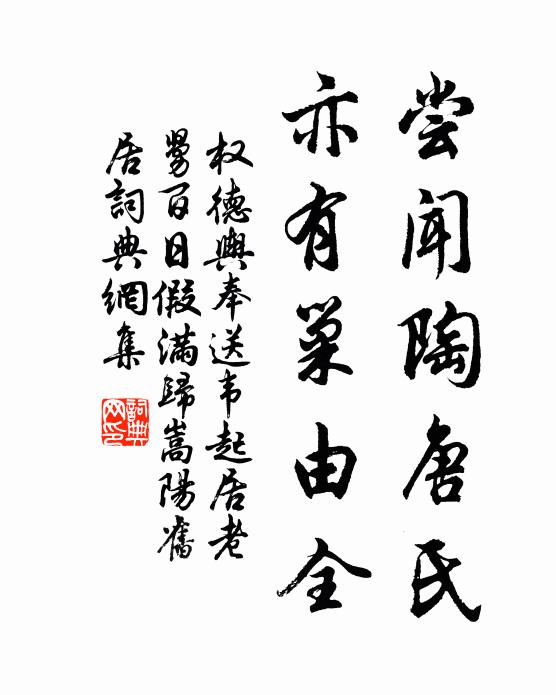 尝闻陶唐氏
亦有巢由全
权德舆奉送韦起居老
舅百日假满归嵩阳旧
居词典網集
詞典网印